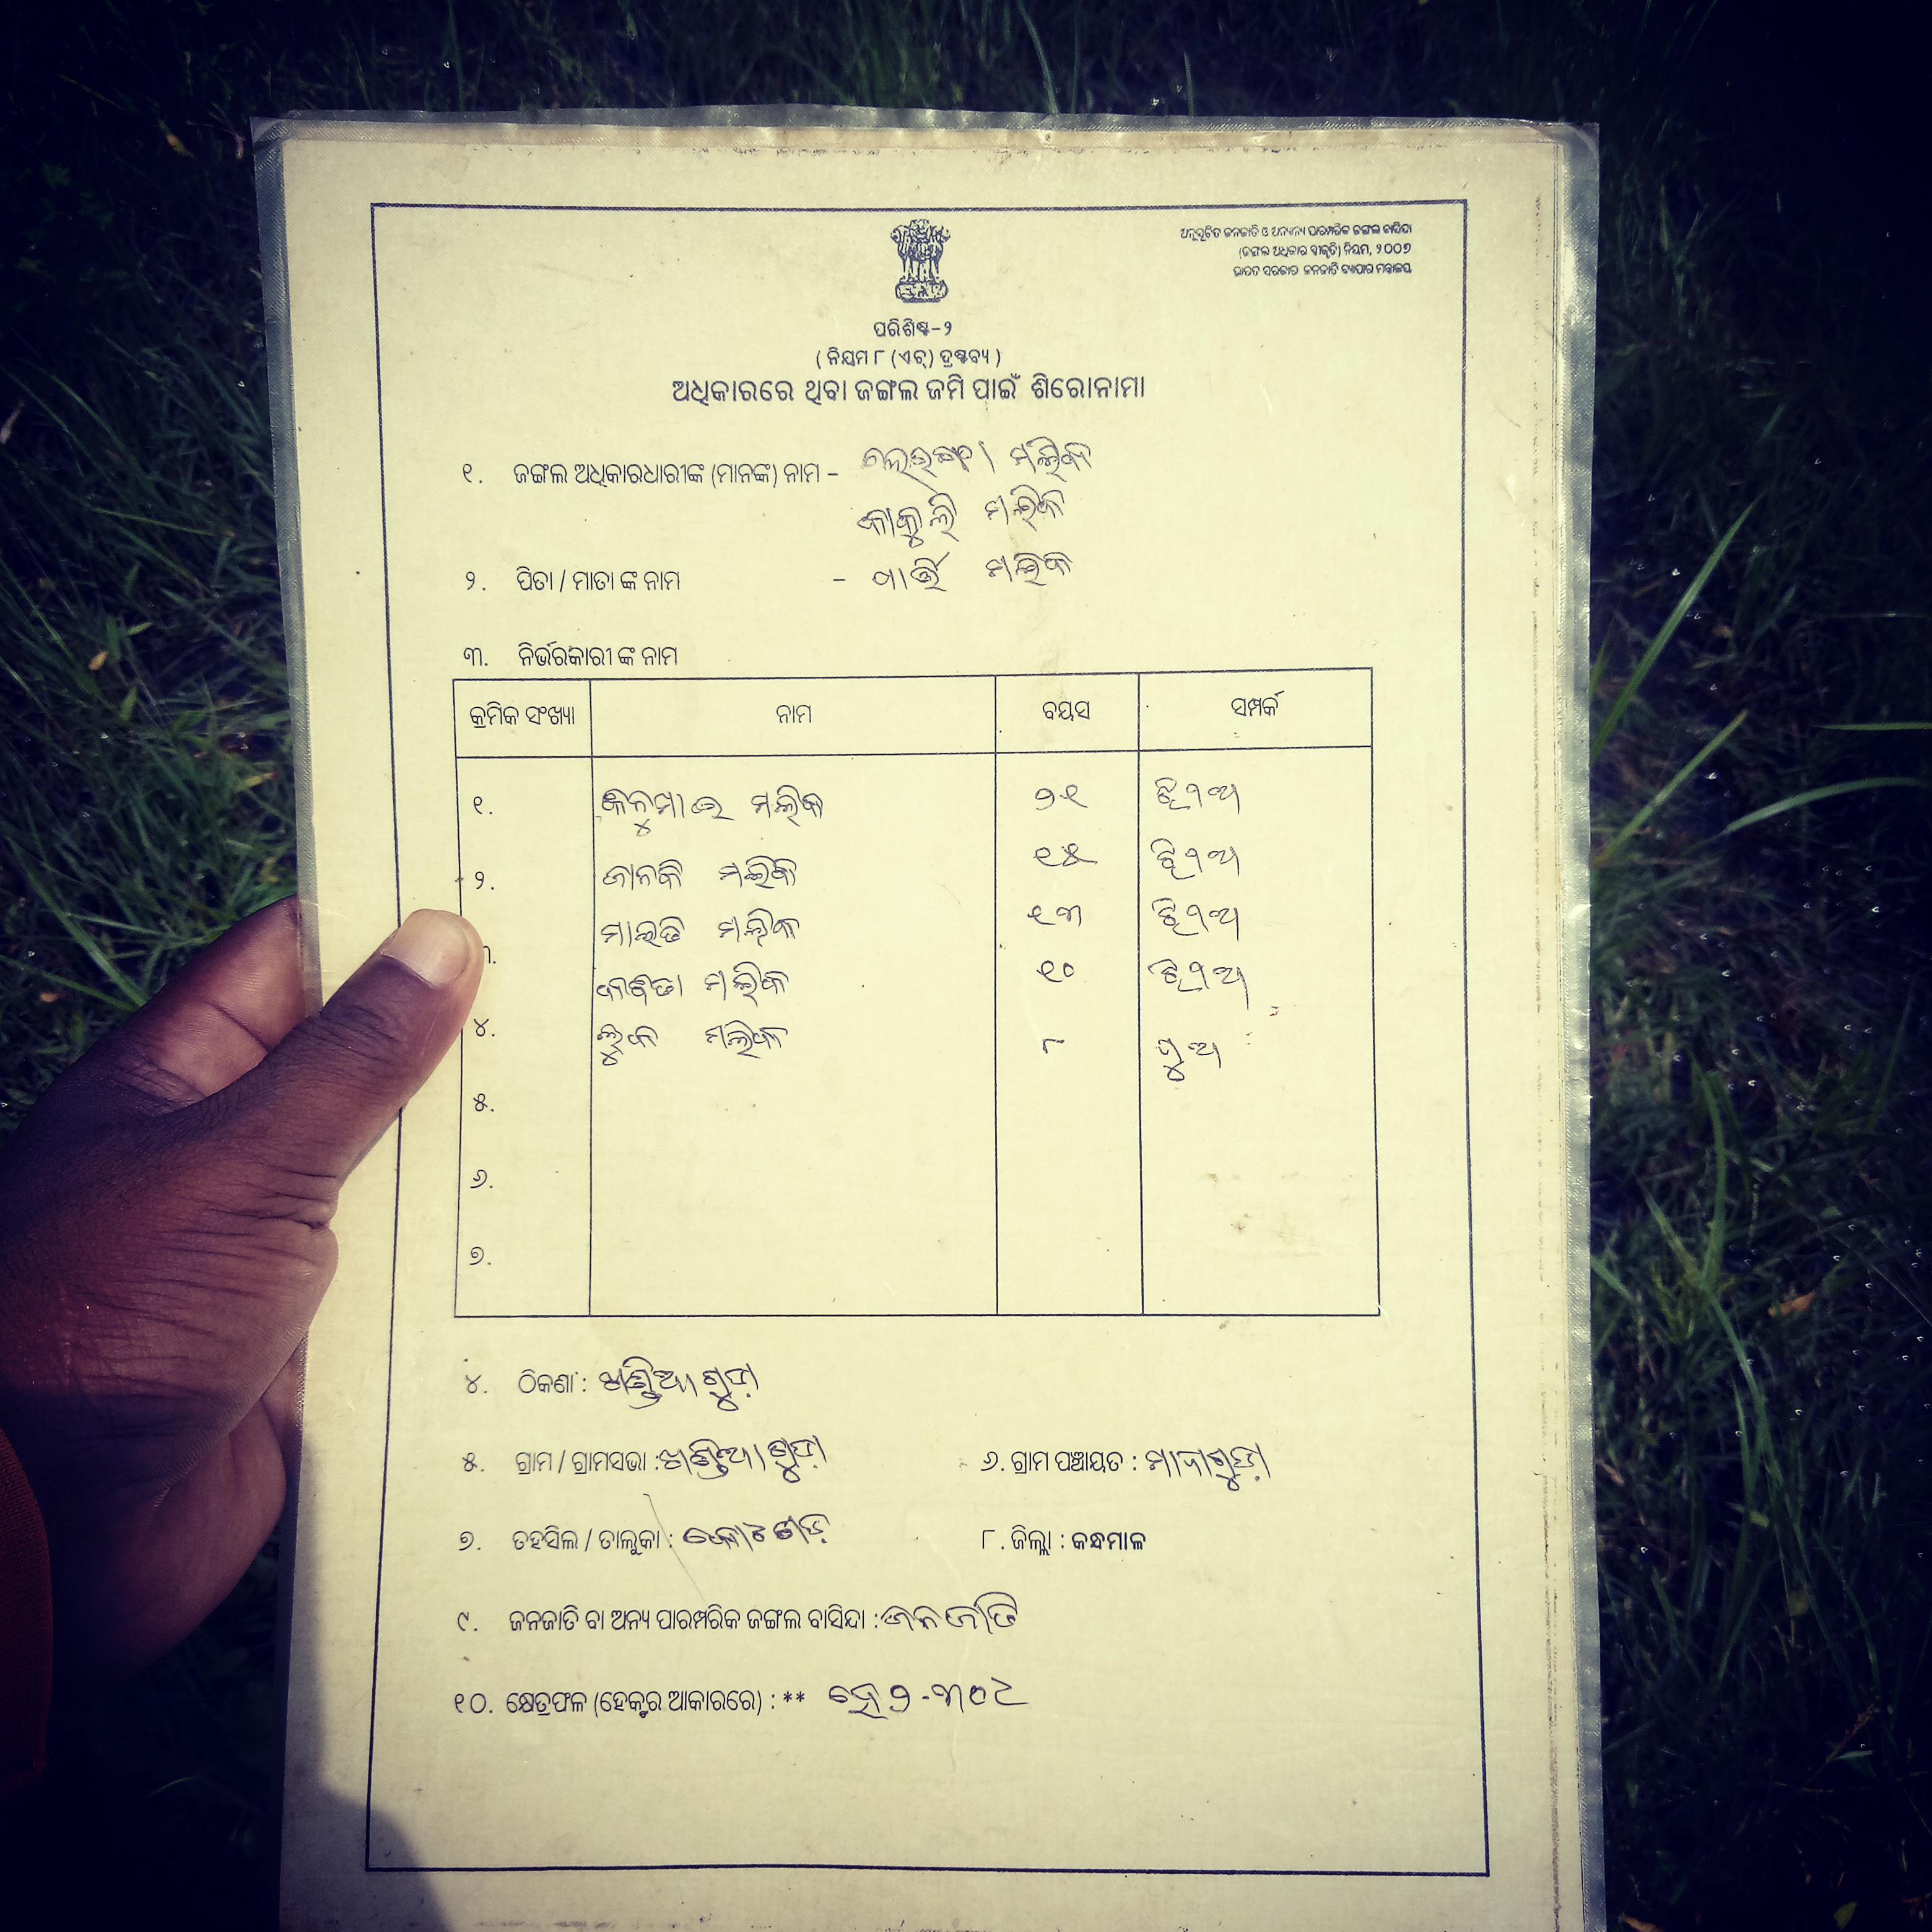 ଅନୁସୂଚିତ ଜନଜାତି ଓ ଅନ୍ୟାନ୍ୟ ପାରମ୍ପରିକ ଜଙ୍ଗଲ ବାସିନ୍ଦା
(ଜଙ୍ଗଲ ଅଧିକାର ସ୍ୱୀକୃତି) ନିୟମ, ୨୦୦୭
ଭାରତ ସରକାର ଜନଜାତି ବ୍ୟାପାର ମନ୍ତ୍ରାଳୟ
ପରିଶିଷ୍ଟ-୨
( ନିୟମ ୮ (ଏଚ୍) ଦ୍ରଷ୍ଟବ୍ୟ )
ଅଧିକାରରେ ଥିବା ଜଙ୍ଗଲ ଜମି ପାଇଁ ଶିରୋନାମା
୧. ଜଙ୍ଗଲ ଅଧିକାରଧାରୀଙ୍କ (ମାନଙ୍କ) ନାମ – ମଲ୍ଲିକ
କାକୁଲି ମଲିକ
୨. ପିତା / ମାତା ଙ୍କ ନାମ – ମଲିକ
୩. ନିର୍ଭରକାରୀ ଙ୍କ ନାମ
କ୍ରମିକ ସଂଖ୍ୟା ନାମ ବୟସ ସମ୍ପର୍କ
୧. ମଲିକ ୨୧ ଝିଅ
୨. ଜାନକି ମଲିକ ୧୫ ଝିଅ
୩. ମାଲତି ମଲିକ ୧୩ ଝିଅ
କବିତା ମଲିକ ୧୦ ଝିଅ
୪. ମଲିକ ୮ ପୁଅ
୫.
୬.
୭.
୪. ଠିକଣା : ଖଣ୍ଡିଆଗୁଡ଼ା
୫. ଗ୍ରାମ / ଗ୍ରାମସଭା : ଖଣ୍ଡିଆଗୁଡ଼ା ୬. ଗ୍ରାମ ପଞ୍ଚାୟତ :
୭. ତହସିଲ / ତାଲୁକା : କୋଟଗଡ଼ ୮. ଜିଲ୍ଲା : କନ୍ଧମାଳ
୯. ଜନଜାତି ବା ଅନ୍ୟ ପାରମ୍ପରିକ ଜଙ୍ଗଲ ବାସିନ୍ଦା : ଜନଜାତି
୧୦. କ୍ଷେତ୍ରଫଳ (ହେକ୍ଟର ଆକାରରେ) : **